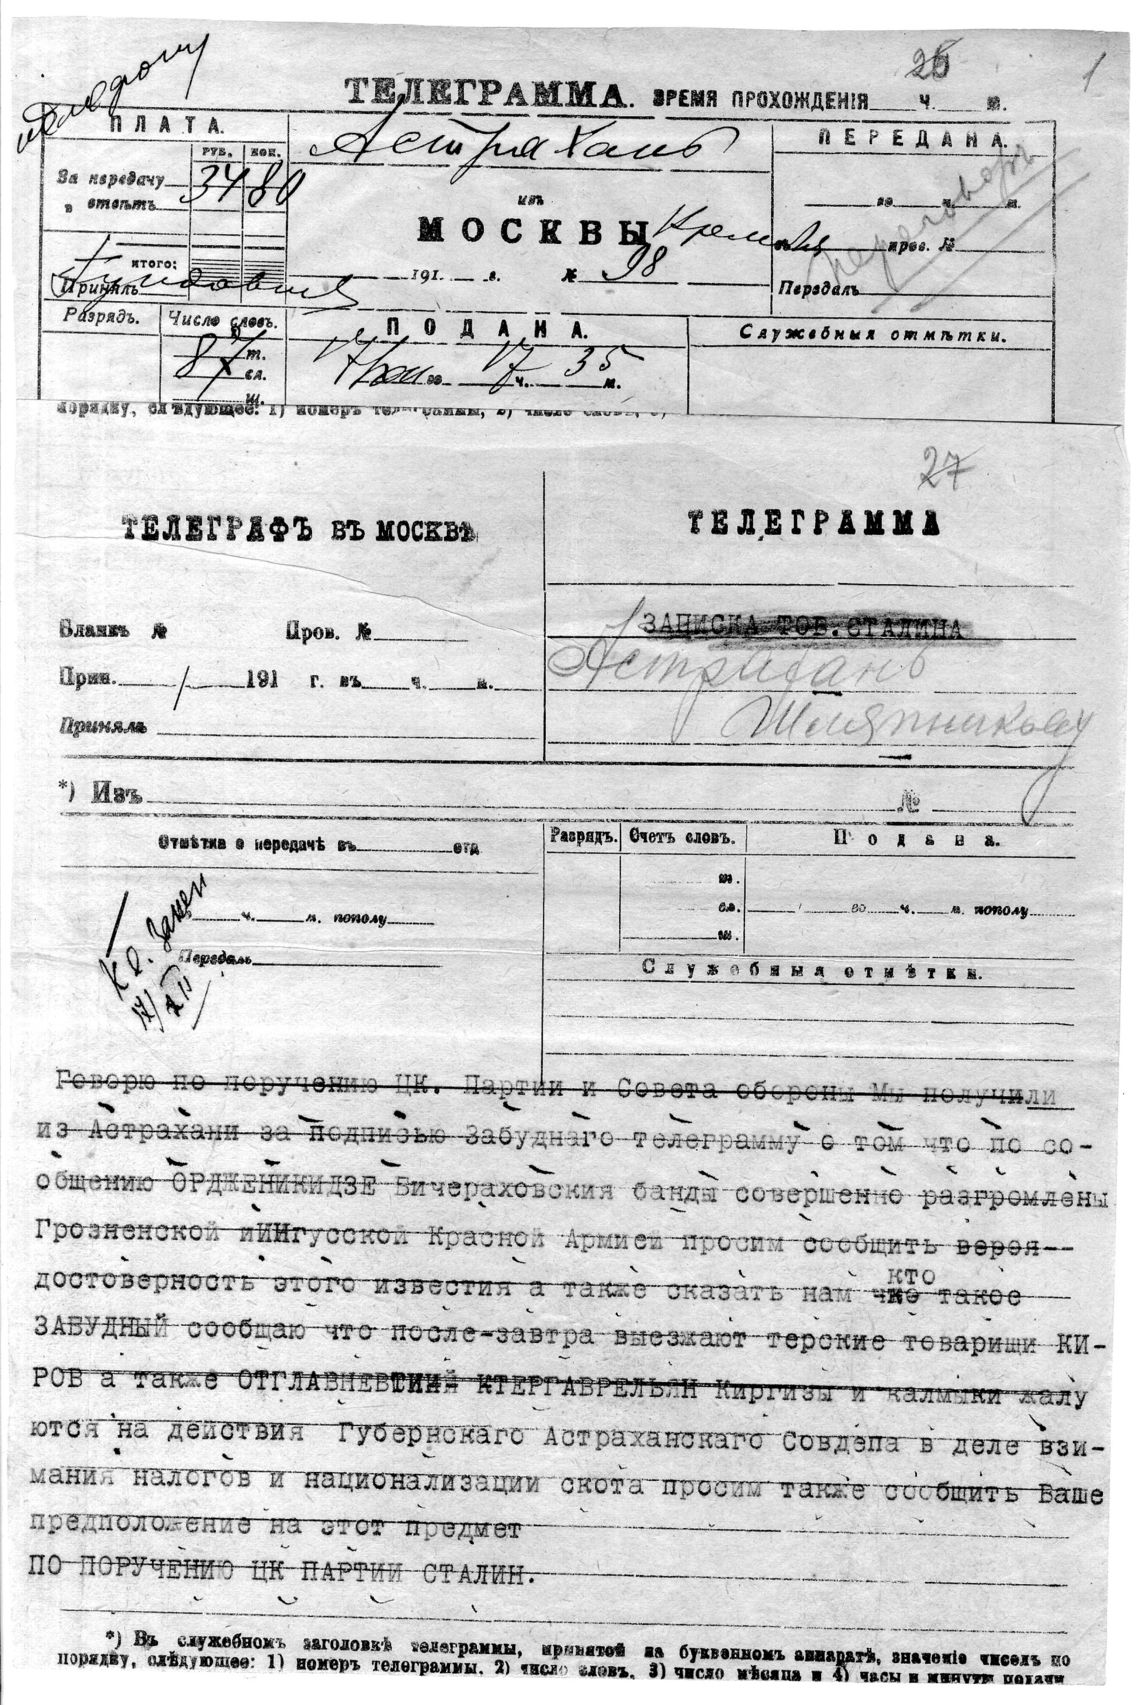 26
1
ТЕЛЕГРАММА. ВРЕМЯ ПРОХОЖДЕНІЯ ч. м.
ПЛАТА.
РУБ. КОП.
За передачу 34 80
" отвѣтъ
ИТОГО:
Принялъ
Астрахань
изъ
МОСКВЫ Кремля
191 г. № 98
ПЕРЕДАНА.
го ч. м.
пров. №
Передалъ
переговоръ
Разрядъ.
Число словъ.
87
т.
сл.
ш.
ПОДАНА.
17/XII го 17 ч. 35 м.
Служебныя отмѣтки.
порядку, слѣдующее: 1) номеръ телеграммы, 2) число словъ, 3)
27
ТЕЛЕГРАФЪ ВЪ МОСКВѢ
Бланкъ № Пров. №
Прин. / 191 г. въ ч. м.
Принялъ
ТЕЛЕГРАММА
ЗАПИСКА ТОВ. СТАЛИНА
Астрахань
Шляпникову
*) Изъ №
Отмѣтка о передачѣ въ отд
ч. м. пополу
Передалъ
17/XII
Разрядъ. Счетъ словъ. Подана.
т.
сл. го ч. м. пополу
ш.
Служебныя отмѣтки.
Говорю по поручению ЦК. Партии и Совета обороны Мы получили
из Астрахани за подписью Забуднаго телеграмму о том что по со-
общению ОРДЖЕНИКИДЗЕ Бичераховския банды совершенно разгромлены
Грозненской и Ингусской Красной Армией просим сообщить вероя--
достоверность этого известия а также сказать нам кто такое
ЗАБУДНЫЙ сообщаю что после-завтра выезжают терские товарищи КИ-
РОВ а также ОТГЛАВНЕВСИИЙ КТЕРГАВРЕЛЬЯН Киргизы и калмыки жалу
ются на действия Губернскаго Астраханскаго Совдепа в деле взи-
мания налогов и национализации скота просим также сообщить Ваше
предположение на этот предмет
ПО ПОРУЧЕНИЮ ЦК ПАРТИИ СТАЛИН.
*) Въ служебномъ заголовкѣ телеграммы, принятой на буквенномъ аппаратѣ, значеніе чиселъ по
порядку, слѣдующее: 1) номеръ телеграммы. 2) число словъ. 3) число мѣсяца и 4) часы и минуты подачи